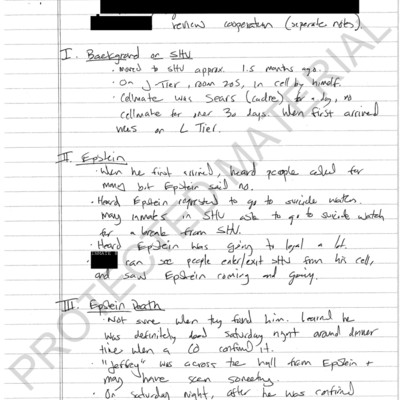 review cooperation (separate notes).
I. Background on SHU
· moved to SHU approx. 1.5 months ago.
· On J Tier, room 205, in cell by himself.
· Cellmate was Sears (cadre) for a day, no
cellmate for over 30 days. When first arrived
was on L Tier.
II. Epstein
· When he first arrived, heard people asked for
money but Epstein said no.
· Heard Epstein requested to go to suicide watch.
Many inmates in SHU ask to go to suicide watch
for a break from SHU.
· Heard Epstein was going to legal a lot.
· INMATE can see people enter/exit SHU from his cell,
and saw Epstein coming and going.
III. Epstein Death
· Not sure when they found him. Learned he
was definitely dead Saturday night around dinner
time when a CO confirmed it.
· "Jersey" was across the hall from Epstein +
may have seen something.
· On Saturday night, after he was confirmed
PROTECTED MATERIAL